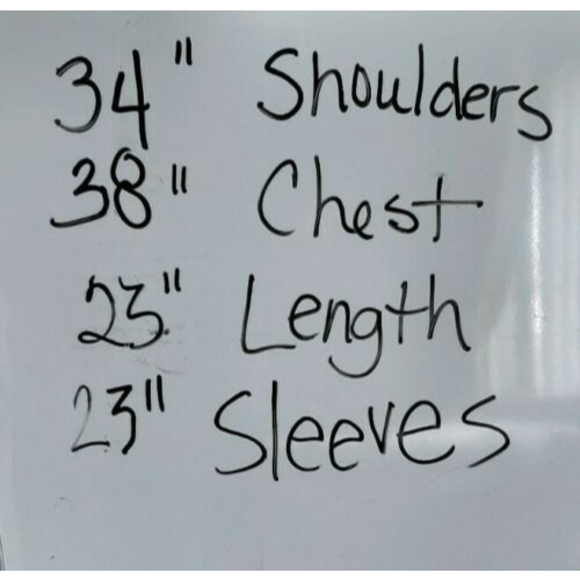 34" Shoulders
38" Chest
23" Length
23" Sleeves